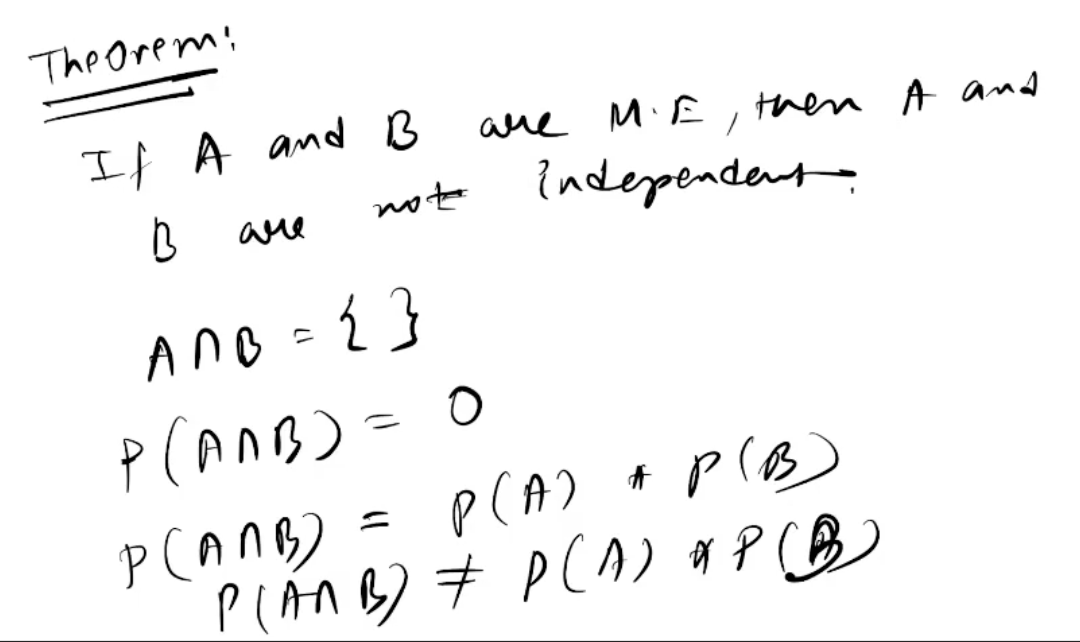 Theorem:
If A and B are M.E, then A and
B are not independent.
A∩B = { }
P(A∩B) = 0
P(A∩B) = P(A) * P(B)
P(A∩B) ≠ P(A) * P(B)